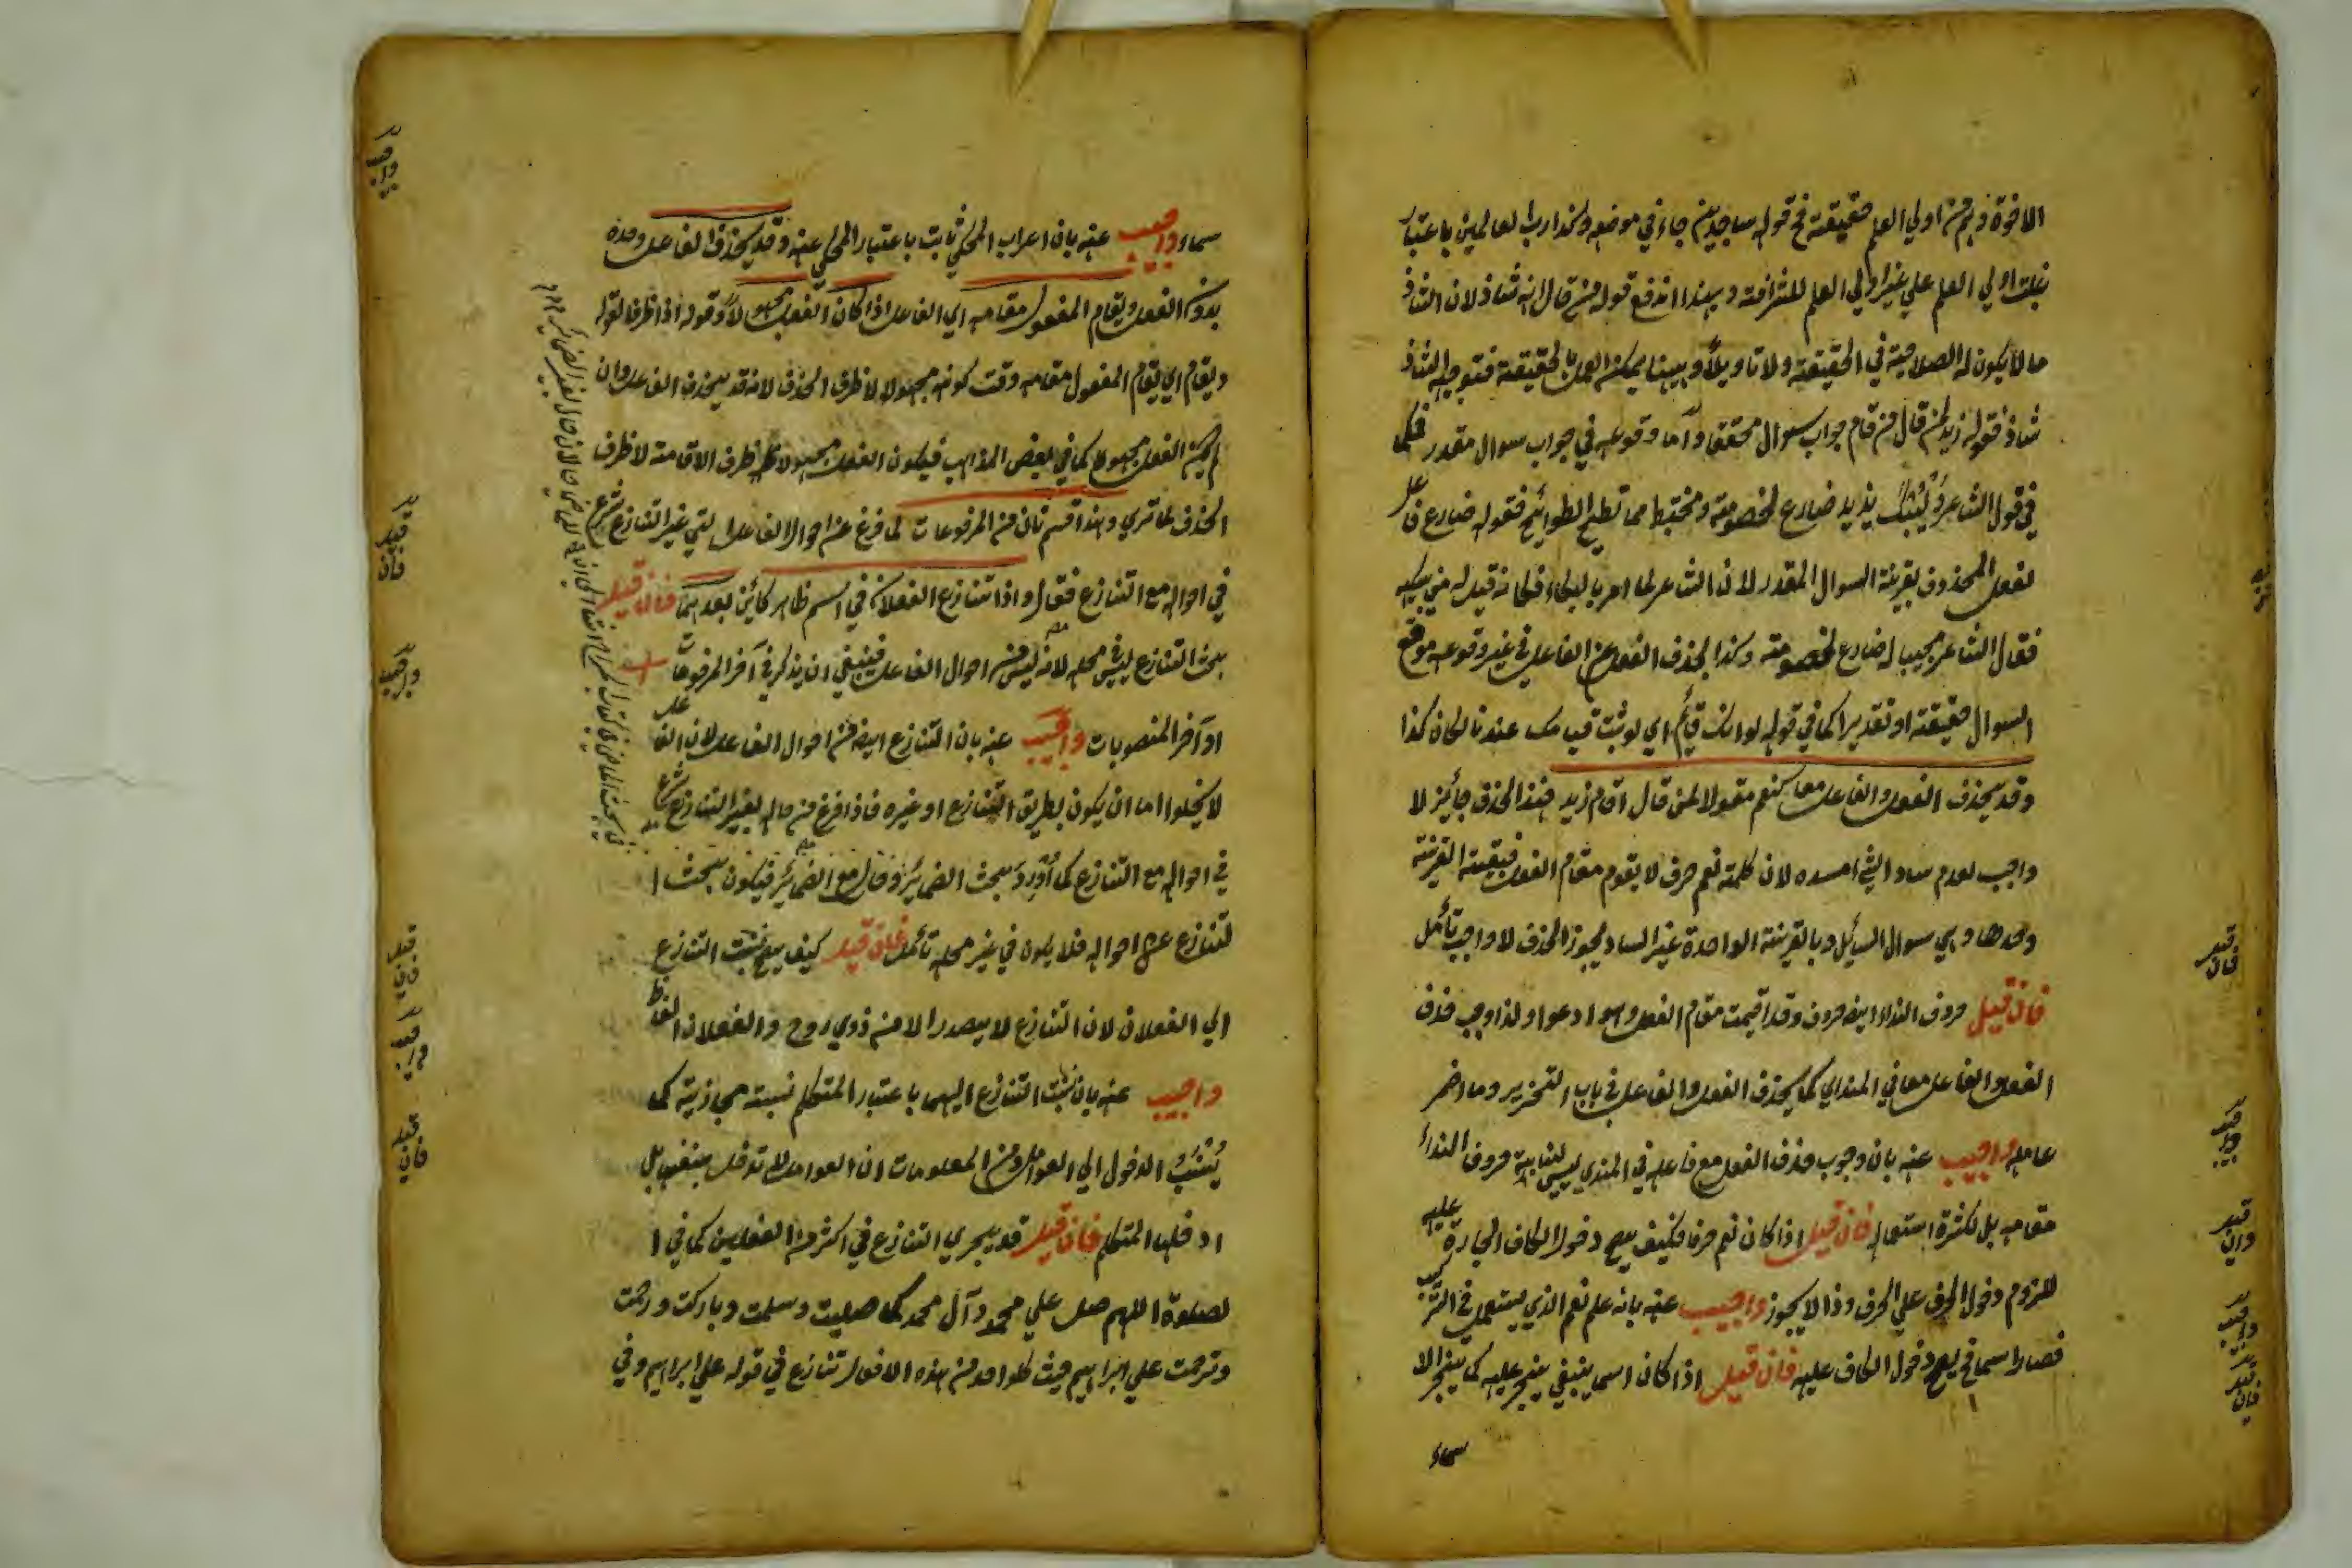 الاخوة وهم من اولي العلم حقيقة فح قوله ساجدين جاء في موضعه وكذا رب العالمين باعتبار
اولي العلم علي غير اولي العلم للشرافة وبهذا اندفع قوله من قال انه شاذ لان الشاذ
ما لا يكون له الصلاحية في الحقيقة ولا تاويلاً وبهنا يمكن الحقيقة فتوجيه الشاذ
شاذ فقوله زيد لمن قال من قام جواب سوال محقق واما وقوعه في جواب سوال مقدر فكما
في قول الشاعر وليبك يزيد ضارع لخصومة ومختبط مما تطيح الطوائح فقوله ضارع فاعل
لفعل المحذوف بقرينة السوال المقدر لان الشاعر لما امر بالبكاء فكانه قيل له من يبكيه
فقال الشاعر مجيبا له ضارع لخصومة وكذا يحذف الفعل عن الفاعل في غير وقوعه موقع
السوال حقيقة او تقديرا كما في قوله لو انك قائم اي لو ثبت قيامك عندنا لكان كذا
وقد يحذف الفعل والفاعل معا كنعم مقولا لمن قال اقام زيد فهذا الحذف جائز لا
واجب لعدم ساد الشئ امسده لان كلمة نعم حرف لا يقوم مقام الفعل فبقيت القرينة
وحدها وهي سوال السائل وبالقرينة الواحدة غير الساد يجوز الحذف لا واجب تأمل
فان قيل حروف النداء ايضا حروف وقد اقيمت مقام الفعل وهو ادعوا ولذا وجب حذف
الفعل والفاعل معا في المنادي كما يحذف الفعل والفاعل في باب التحذير وما اضمر
عامله واجيب عنه بان وجوب حذف الفعل مع فاعله في المندي ليس لنيابة حروف النداء
مقامه بل لكثرة استعماله فان قيل اذا كان نعم حرفا فكيف يصح دخول الكاف الجارة عليه
للزوم دخول الحرف علي الحرف وذا لا يجوز واجيب عنه بانه علم نعم الذي يستعمل في التركيب
فصار اسما فح يصح دخول الكاف عليه فان قيل اذا كان اسما ينبغي ينجر عليه كما ينجر الا
سماء
سماء واجيب عنه بان اعراب المحكي ثابت باعتبار المحكي عنه وقد يحذف الفاعل وحده
بدون الفعل ويقام المفعول مقامه اي الفاعل اذا كان الفعل مجهولاً وقوله اذا ظرف لقوله
ويقام اي يقام المفعول مقامه وقت كونه مجهولا لا ظرف الحذف لانه قد يحذف الفاعل وان
لم يكن الفعل مجهولا كما في بعض المذاهب فيكون الفعل مجهولا ظرف الاقامة لا ظرف
الحذف كما تري وهذا قسم ثان من المرفوعات لما فرغ عن احوال الفاعل التي غير التنازع شرع
في احواله مع التنازع فقال واذا تنازع الفعلان في اسم ظاهر كائن بعدهما فان قيل
بحث التنازع ليس في محله لانه ليس من احوال الفاعل فينبغي ان يذكر في آخر المرفوعات
او آخر المنصوبات واجيب عنه بان التنازع ايضا من احوال الفاعل لان الفاعل
لا يخلوا اما ان يكون بطريق التنازع او غيره فاذا فرغ من حاله بغير التنازع شرع
في احواله مع التنازع كما أورد بحث الضمائر وقال مع الضمائر فيكون بحث ا
لتنازع من احواله فلا يكون في غير محله تأمل فان قيل كيف يصح نسبت التنازع
الي الفعلان لان التنازع لا يصدر الا من ذوي روح والفعلان الفاظ
واجيب عنه بان نسبت التنازع اليهما باعتبار المتكلم نسبة مجازية كما
يُنْسَبُ الدخول الي العوامل ومن المعلومات ان العوامل لا تدخل بنفسها بل
ادخلها المتكلم فان قيل قد يجري التنازع في اكثر من الفعلين كما في ا
لصلوة اللهم صل علي محمد وآل محمد كما صليت وسلمت وباركت ورحمت
وترحمت علي ابراهيم حيث كل واحد من هذه الافعال تنازع في قوله علي ابراهيم وفي
واجيب
فان قيل
واجيب
فان قيل
واجيب
فان قيل
فان قيل
واجيب
وان قيل
واجيب
فان قيل